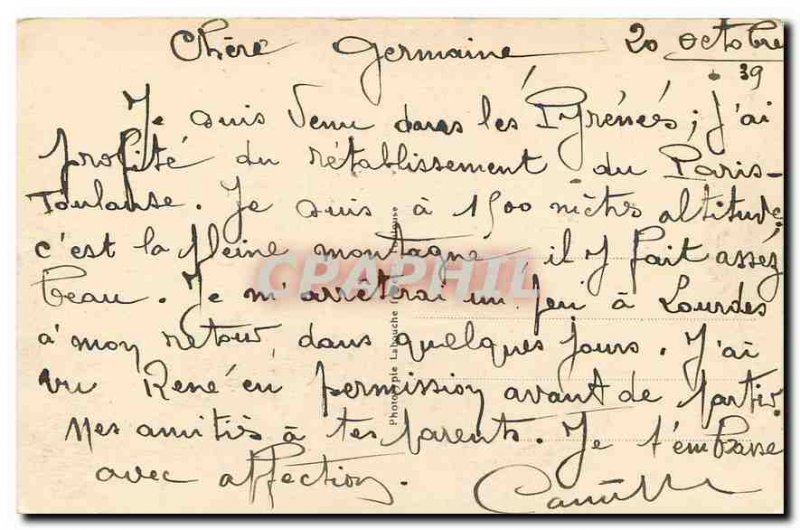 Chère Germaine, 20 octobre
39
Je suis venu dans les Pyrénées; j'ai
profité du rétablissement du Paris-
Toulouse. Je suis à 1500 mètres altitude,
c'est la pleine montagne, il y fait assez
beau. Je m'arrêterai un peu à Lourdes
à mon retour, dans quelques jours. J'ai
vu René en permission avant de partir.
Mes amitiés à tes parents. Je t'embrasse
avec affection.
Camille
CPAPHIL
Labouche